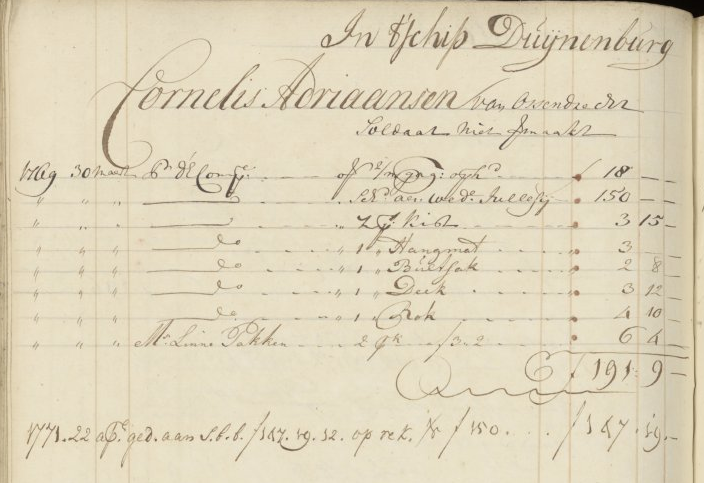 In t'schip Duijnenburg
Cornelis Adriaansen van Ossendrecht
Soldaat niet gemaakt
1769 30 maart Pr. d'E Compe. of 2/m gag: opgh. ƒ 18 —
" " " sch. aen wede. 150 —
" " " kist " 3 15 —
" " " do " 1 " Hangmat " 3 —
" " " do " 1 " Bultsak " 2 8 —
" " " do " 1 " Deek " 3 12 —
" " " do " 1 " Rok " 4 10 —
" " " Mr. Linne Pakken 2 ƒ 3.2 " 6 4 —
ƒ 191: 9 —
1771. 22 ap. ged. aan S.b.b. ƒ 147.19.12. op rek. ƒ 150 . . . ƒ 147.19.—